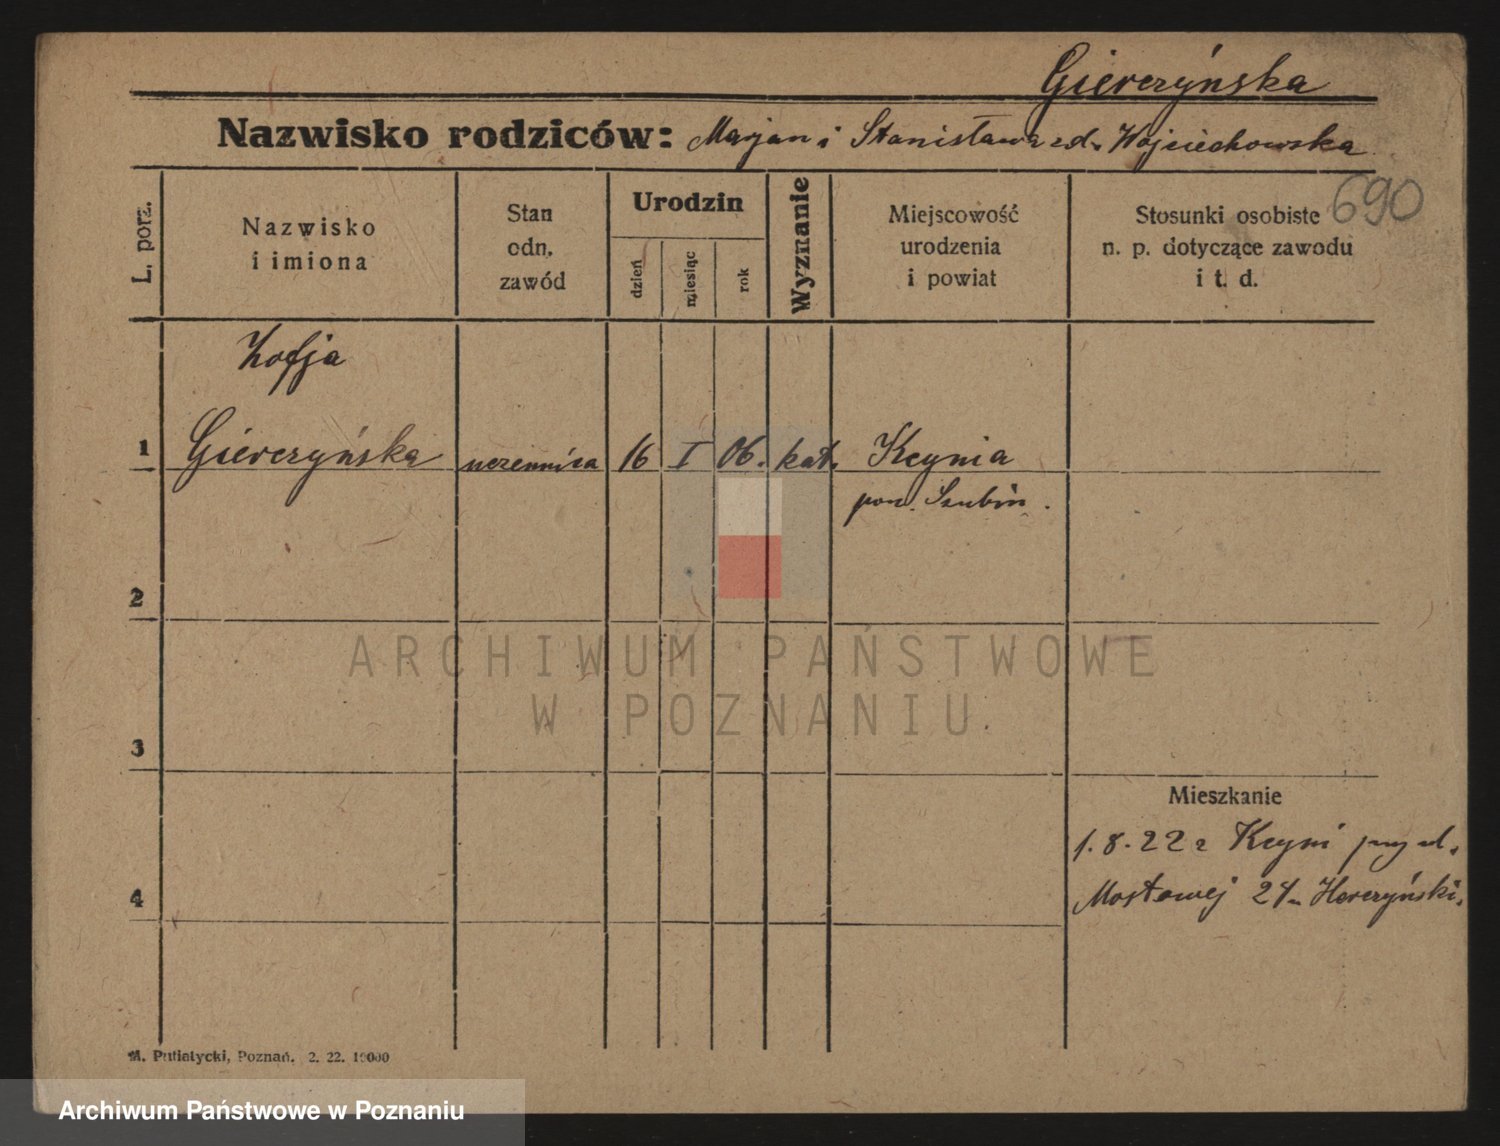 Gierczyńska
Nazwisko rodziców: Marjan i Stanisława zd. Wojciechowska
690
L. porz.
Nazwisko
i imiona
Stan
odn.
zawód
Urodzin
dzień
miesiąc
rok
Wyznanie
Miejscowość
urodzenia
i powiat
Stosunki osobiste
n. p. dotyczące zawodu
i t. d.
Zofja
1 Gierczyńska uczennica 16 I 06. kat. Kcynia
pow. Szubin.
2
ARCHIWUM PAŃSTWOWE
W POZNANIU
3
Mieszkanie
1.8.22 z Kcyni przy ul.
Mostowej 24
4
M. Putiatycki, Poznań. 2. 22. 10000
Archiwum Państwowe w Poznaniu